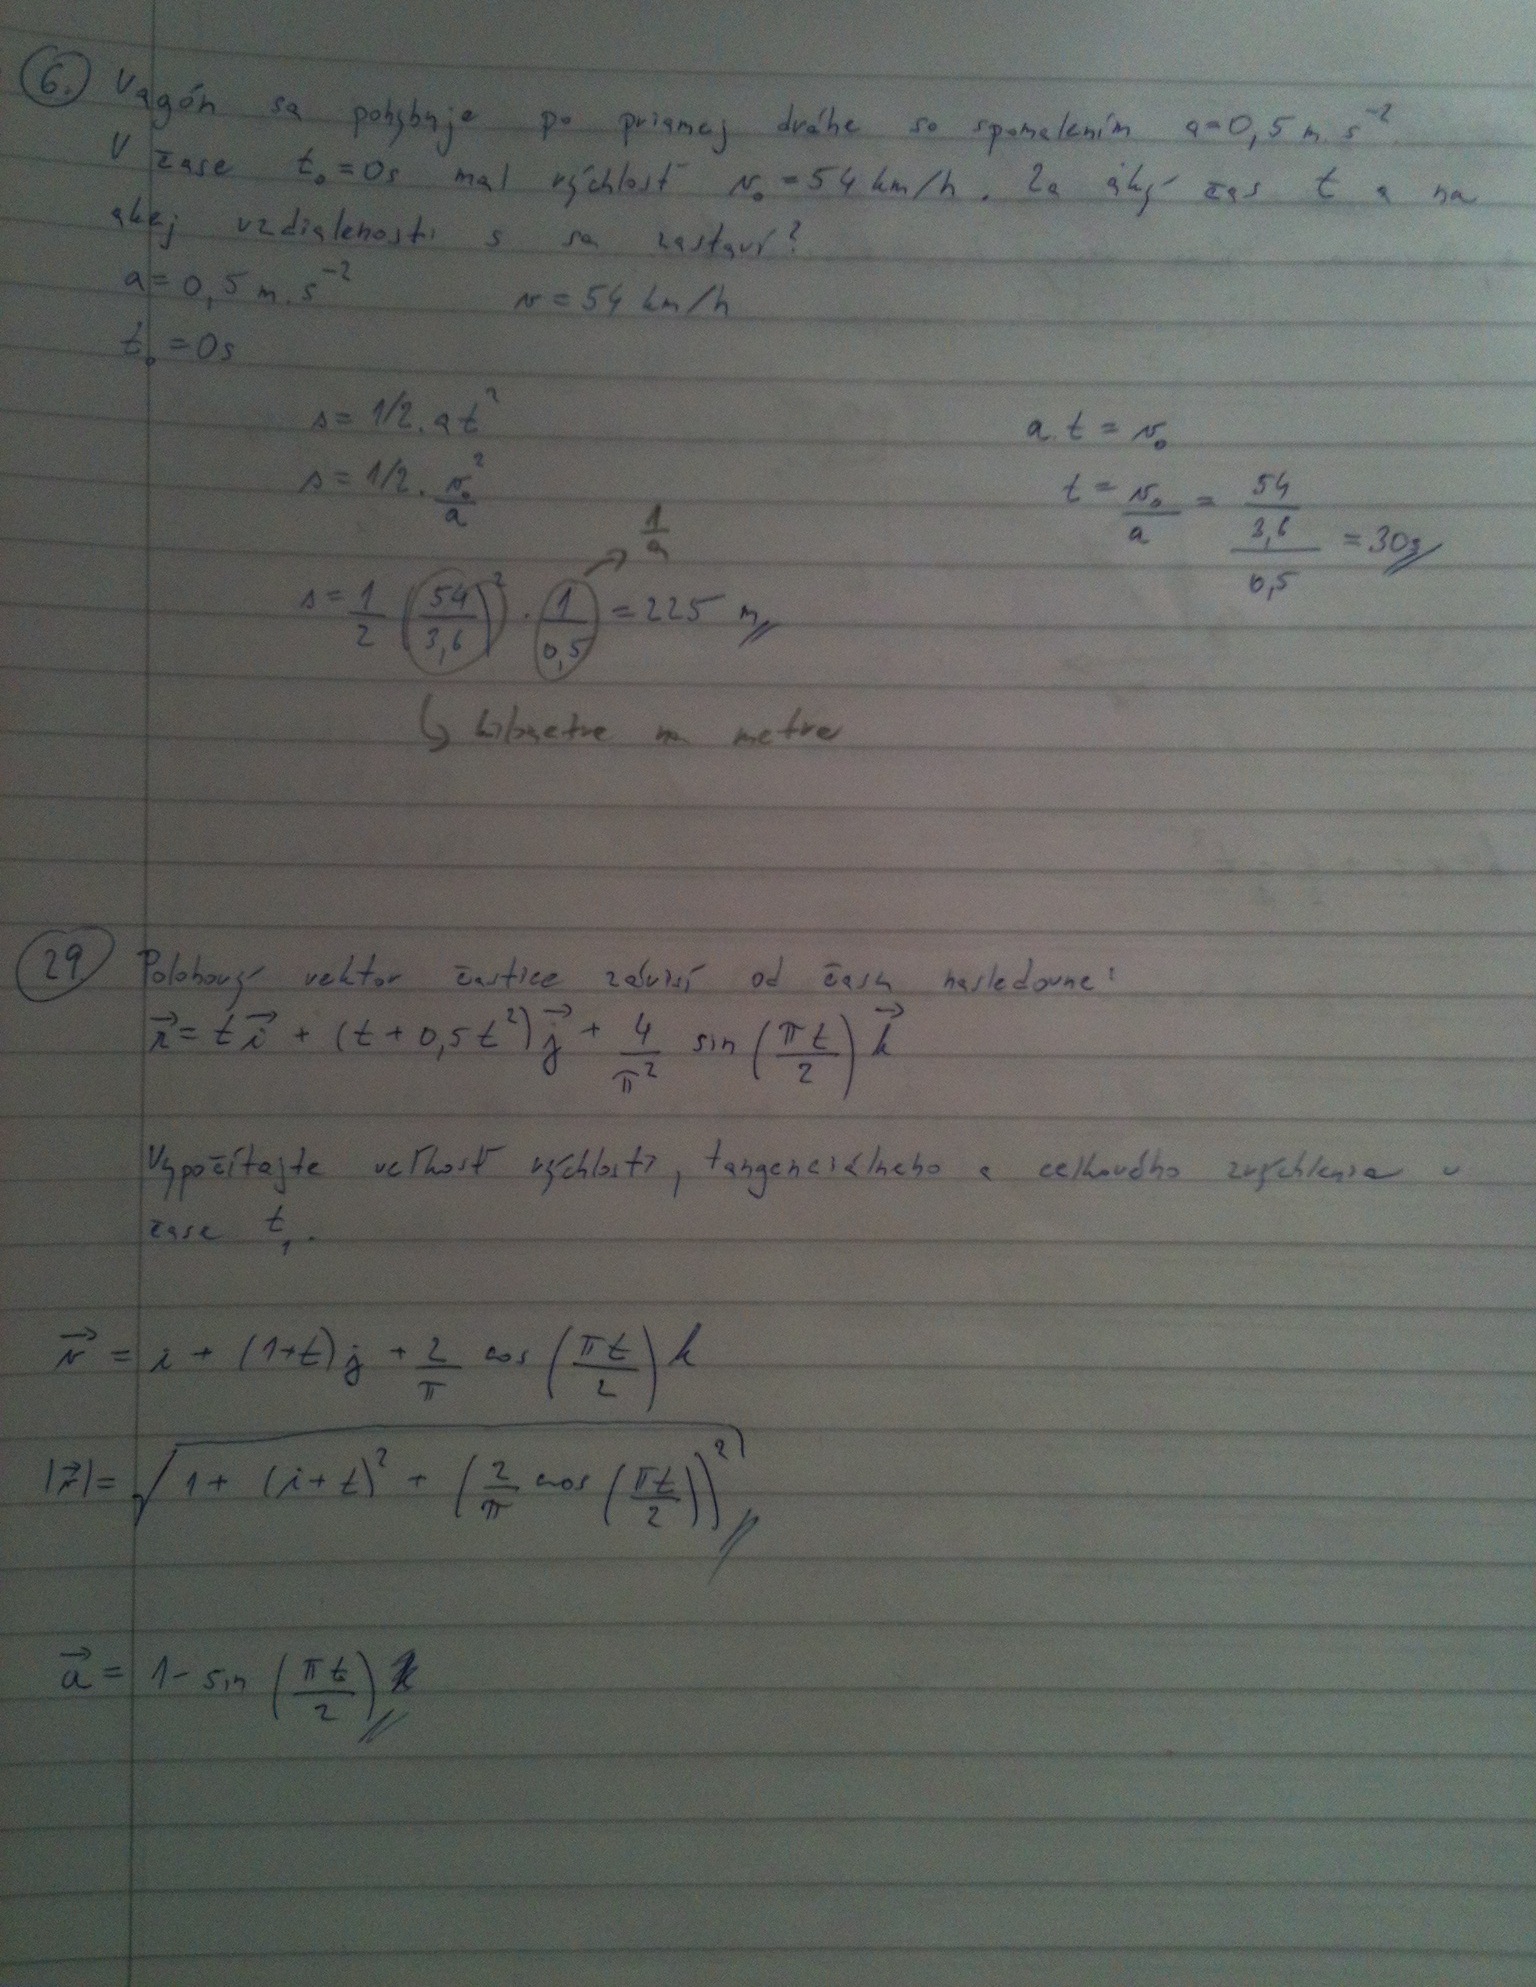 6. Vagón sa pohybuje po priamej dráhe so spomalením a=0,5 m.s⁻²
V čase t₀=0s mal rýchlosť v₀=54 km/h. Za aký čas t a na
akej vzdialenosti s sa zastaví?
a=0,5 m.s⁻² v=54 km/h
t₀=0s
s=1/2.at² a.t=v₀
s=1/2.v₀²/a t=v₀/a=(54/3,6)/0,5=30s
1/a
s=1/2(54/3,6)².1/0,5=225 m
↳ kilometre na metre
29 Polohový vektor častice závisí od času nasledovne:
r⃗=t i⃗+(t+0,5t²)j⃗+4/π² sin(πt/2)k⃗
Vypočítajte veľkosť rýchlosti, tangenciálneho a celkového zrýchlenia v
čase t₁.
v⃗=i+(1+t)j+2/π cos(πt/2)k
|v⃗|=√(1+(i+t)²+(2/π cos(πt/2))²)
a⃗=1-sin(πt/2)k